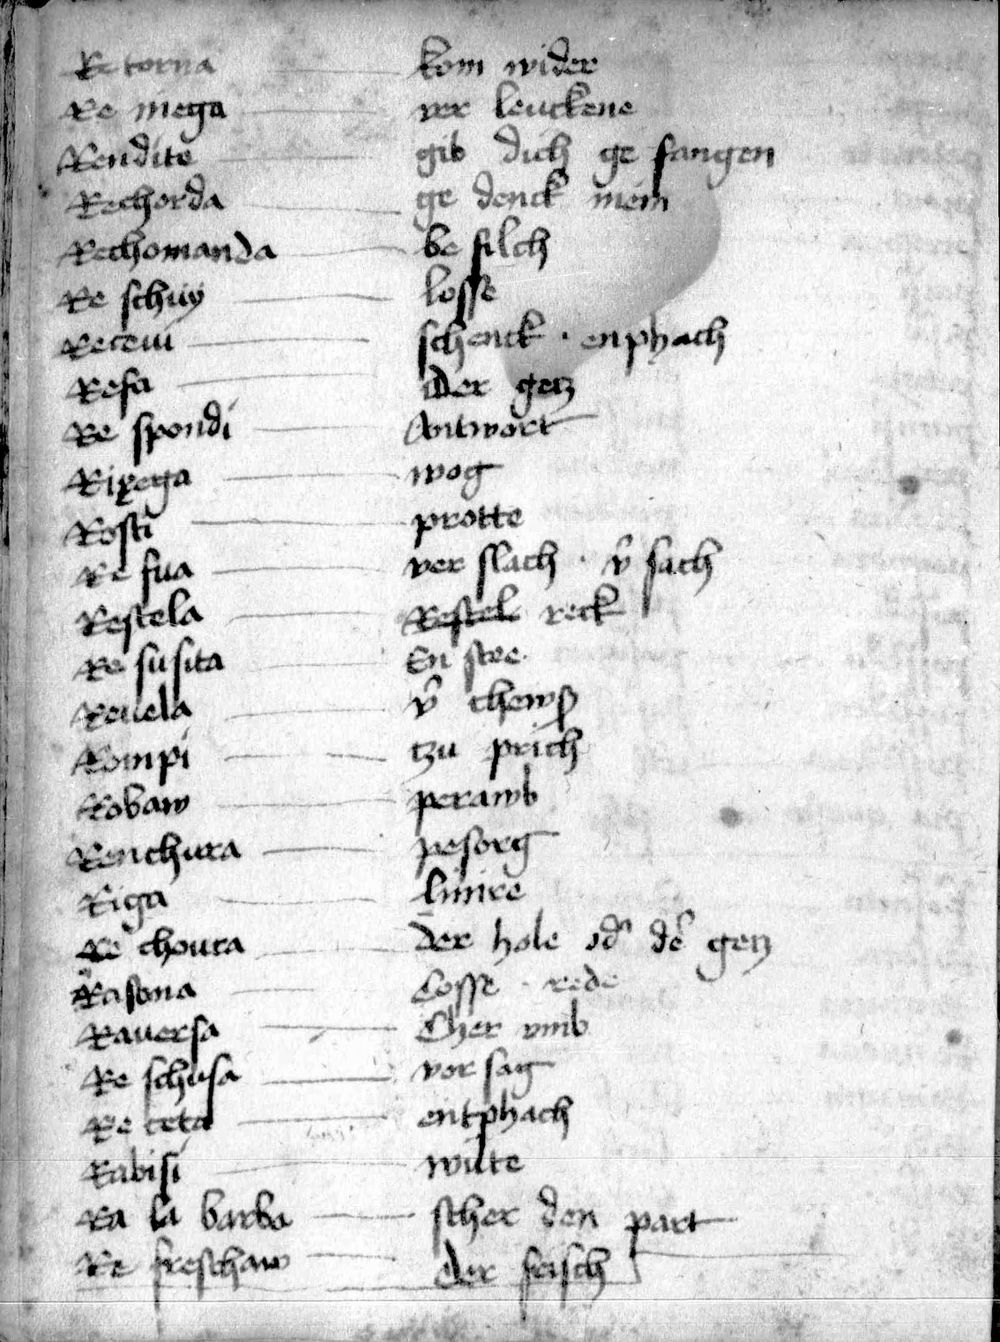 Re torna kom wider
Re niega ver leuckene
Rendite gib dich ge fangen
Rechorda ge denck mein
Rechomanda be filch
Re schuy losse
Recevi schenck · enphach
Refa Der gecz
Re spondi Antwort
Rixega wog
Rosti protte
Re fua ver slach · v̾ sach
Restela Restel reck
Re susita En stee
Revela v̾
Rompi tzu prich
Robaw perawb
Renchura pesorg
Riga linire
Re choura Der hole od̾ de̾ gecz
Rasona Losse · rede
Raversa Cher vmb
Re schusa vor sag
Re ceta entphach
Rabisi wute
Ra la barba scher den part
Re freschaw der frisch